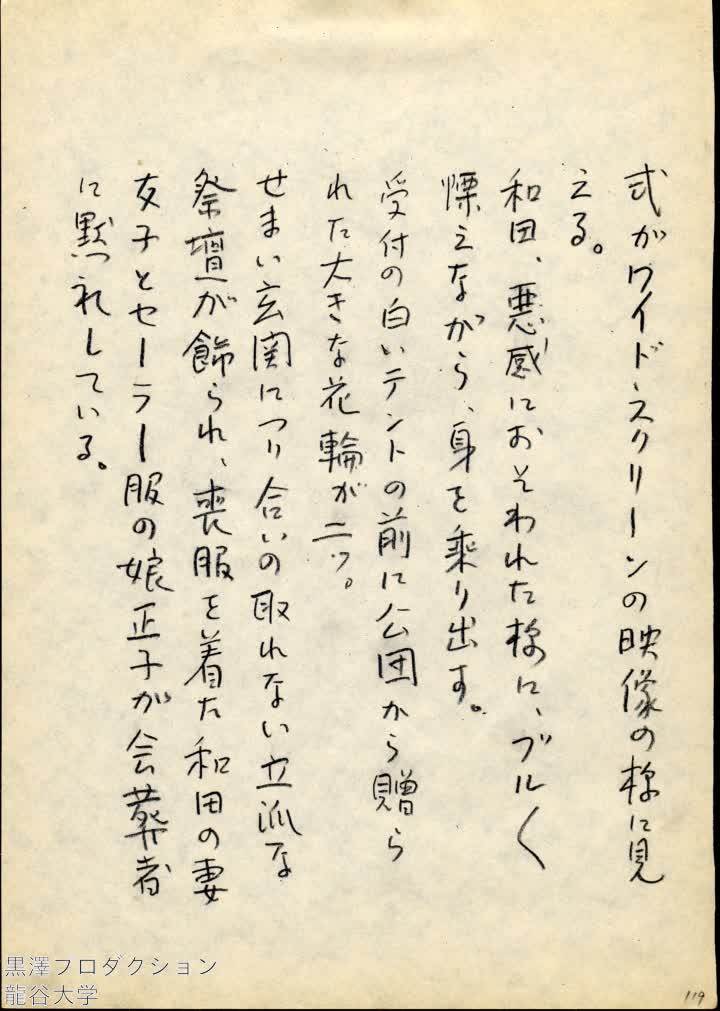 式がワイド・スクリーンの映像の様に見
える。
和田、悪感におそわれた様に、ブル〱
慄えながら、身を乗り出す。
受付の白いテントの前に公団から贈ら
れた大きな花輪が二ツ。
せまい玄関につり合いの取れない立派な
祭壇が飾られ、喪服を着た和田の妻
友子とセーラー服の娘正子が会葬者
に黙礼している。
黒澤プロダクション
龍谷大学
119